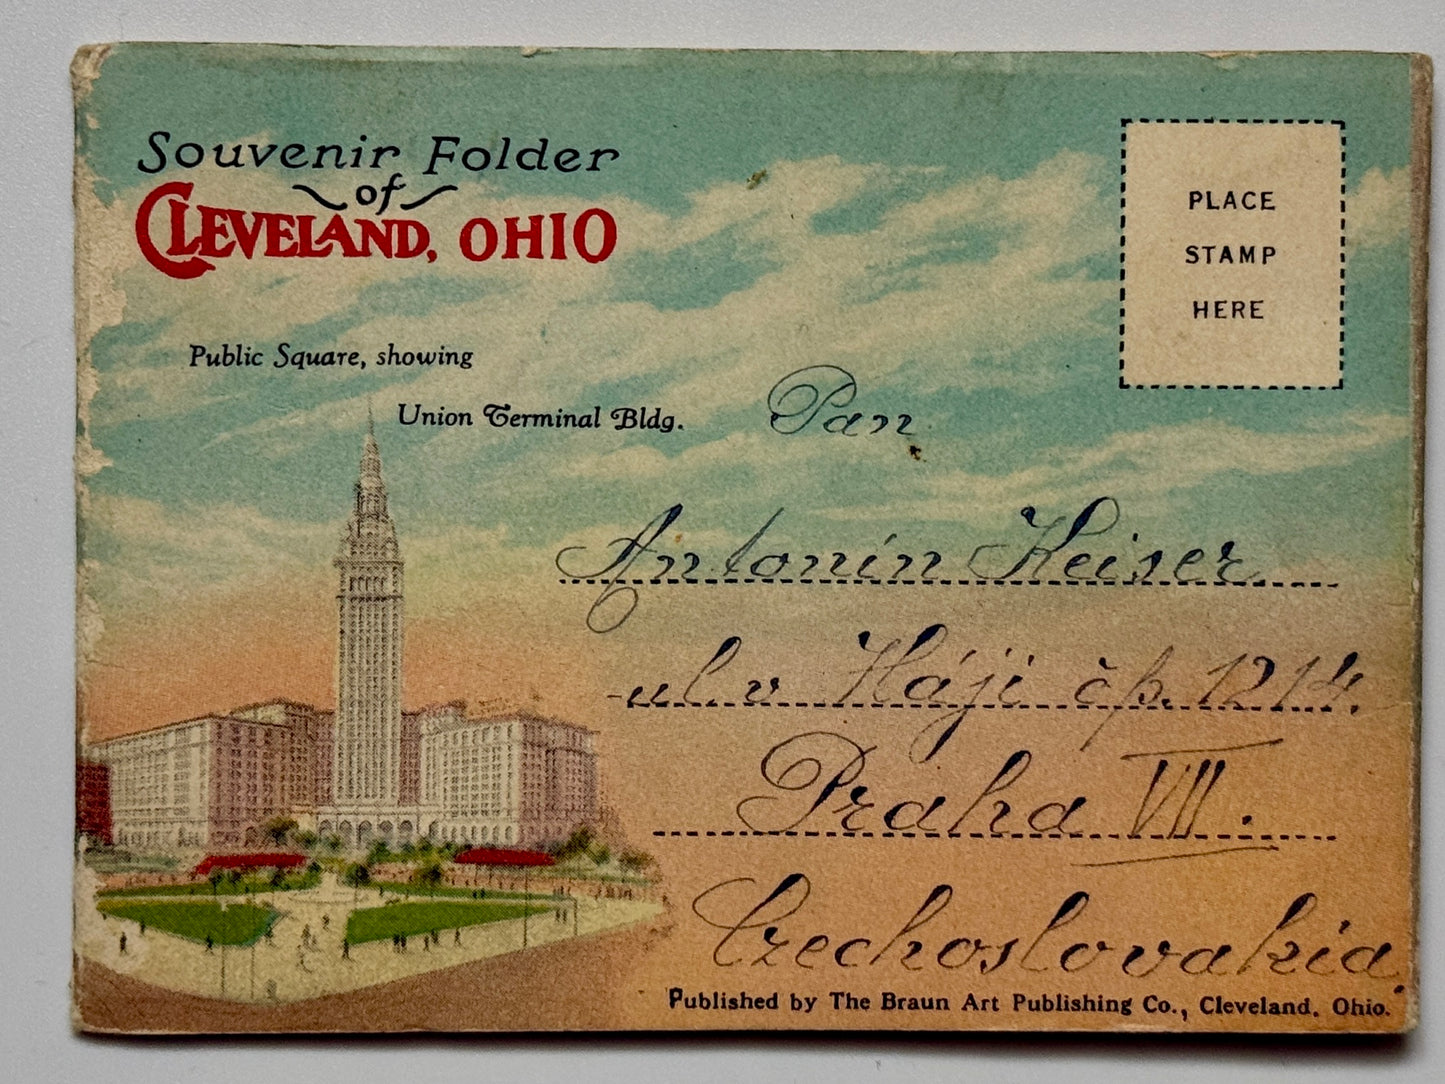 Souvenir Folder
of
CLEVELAND, OHIO
PLACE
STAMP
HERE
Public Square, showing
Union Terminal Bldg.
Pan
Antonín Heiser
ul. v Háji čp. 1214.
Praha VII.
Czechoslovakia
Published by The Braun Art Publishing Co., Cleveland, Ohio.